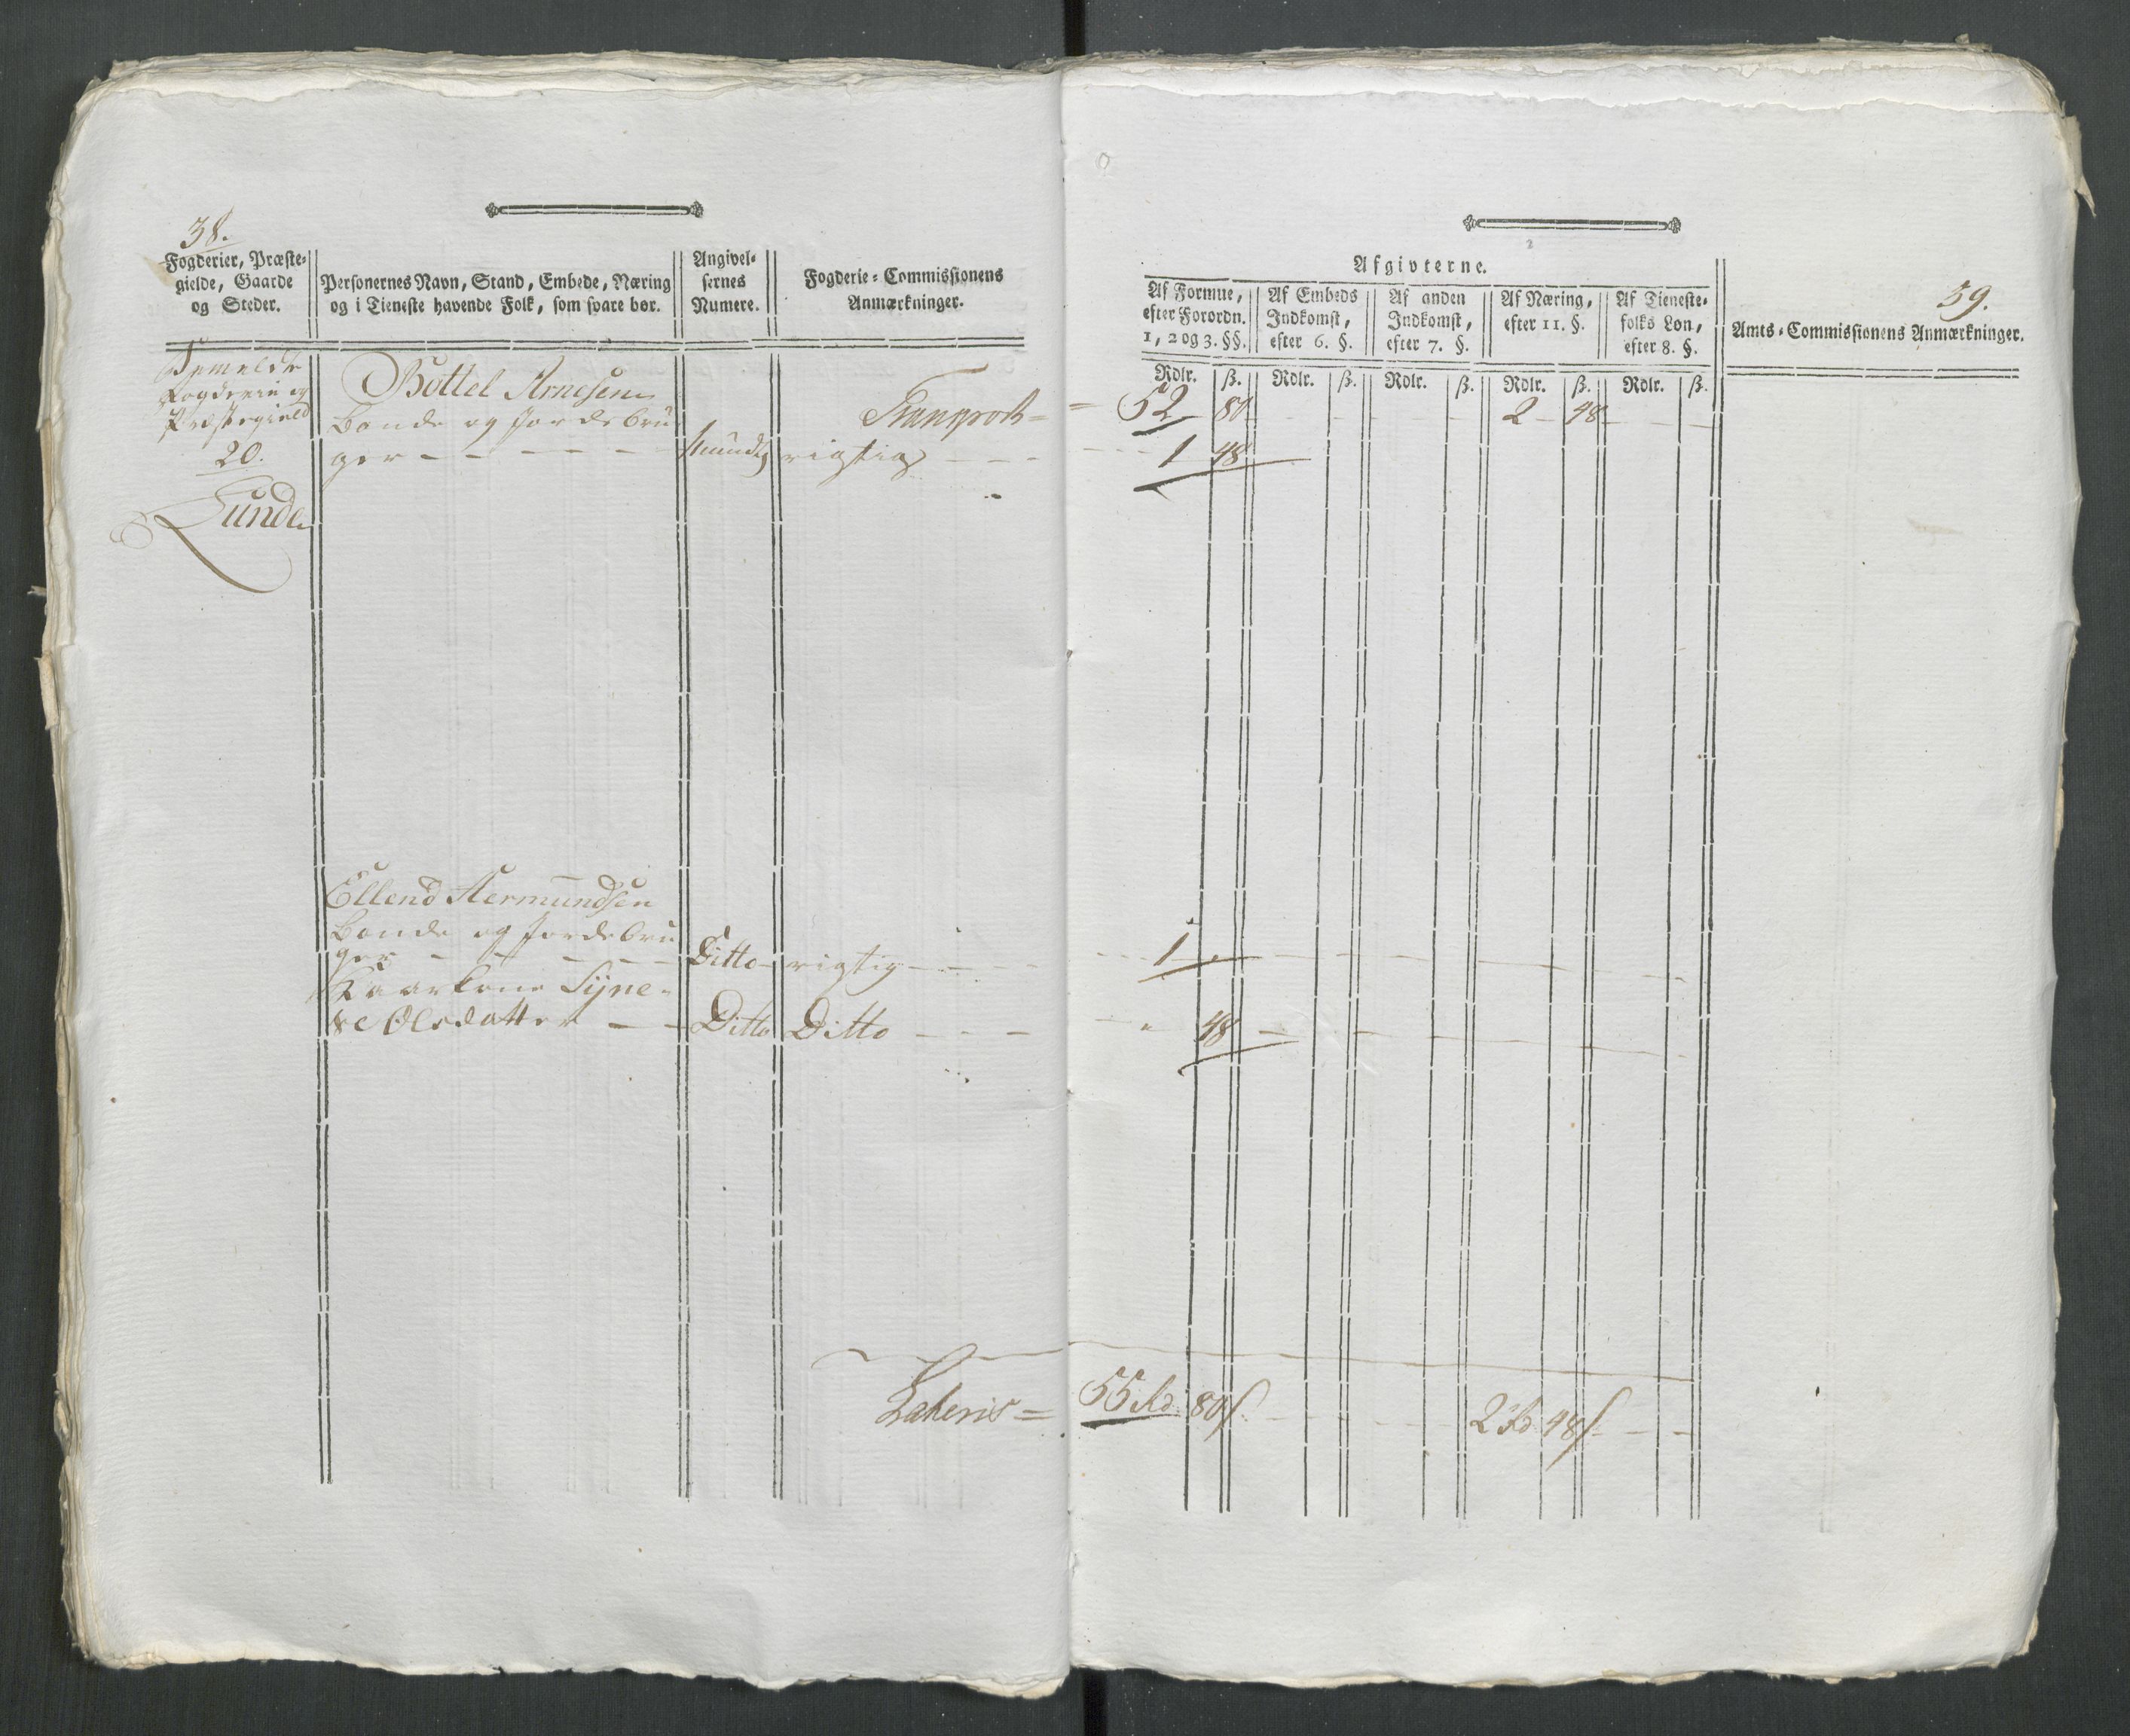 38.
Fogderier, Præste-
gielde, Gaarde
og Steder.
Personernes Navn, Stand, Embede, Næring
og i Tieneste havende Folk, som svare bør.
Angivel-
sernes
Numere.
Fogderie-Commissionens
Anmærkninger.
Bemeldte
Fogderie og
Præstegield
20.
Lunde
Bottel Arnesen
bonde og Jordebru
ger - - - - - Mundtlig rigtig - - -
Transport =
Ellend Hermundsen
bonde og Jordebru
ger - - - - - Ditto - rigtig - - -
Kaarkone Sijne-
Olsdatter - - Ditto Ditto - - -
Lateris =
39.
Afgivterne.
Af Formue,
efter Forordn.
1, 2 og 3. §§.
Af Embeds
Indkomst,
efter 6. §.
Af anden
Indkomst,
efter 7. §.
Af Næring,
efter 11. §.
Af Tieneste-
folks Løn,
efter 8. §.
Amts-Commissionens Anmærkninger.
Rdlr. ß. Rdlr. ß. Rdlr. ß. Rdlr. ß. Rdlr. ß.
52 80 - - - - 2 - 48 - - -
1 48
1 "
" 48
55 Rd 80 ß - - - - 2 Rd 48 ß - - -